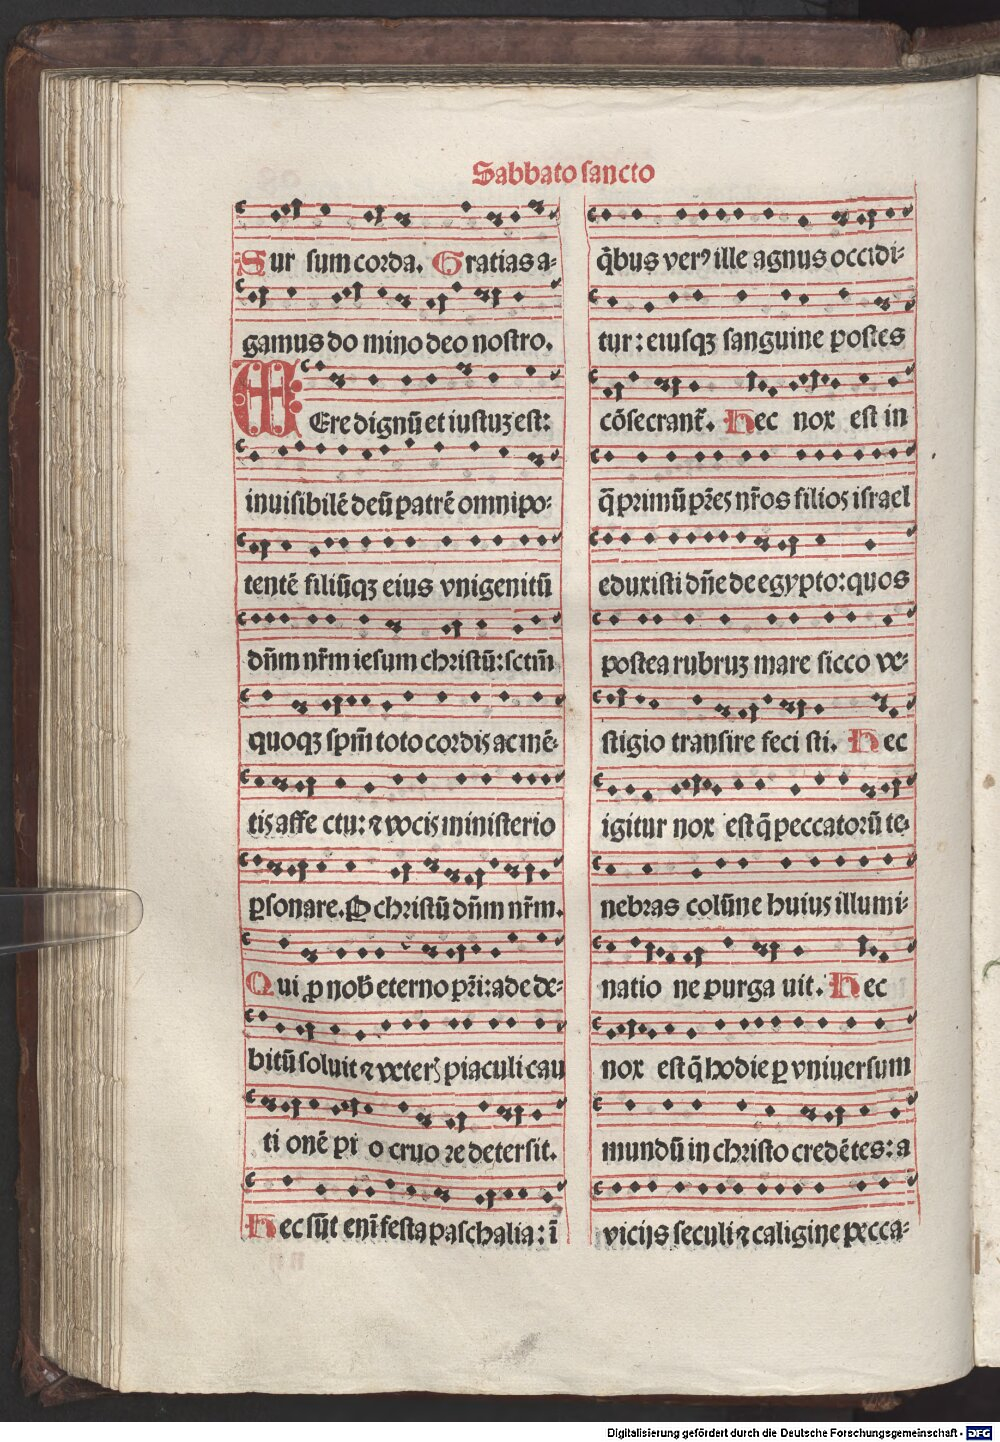 Sabbato sancto
Sur sum corda. Gratias a-
gamus do mino deo nostro.
VEre dignū et iustuꝫ est:
inuisibilē deū patrē omnipo-
tentē filiūqꝫ eius vnigenitū
dn̄m nr̄m iesum christū: sctm̄
quoqꝫ spm̄ toto cordis ac mē-
tis affe ctu: ⁊ vocis ministerio
ꝑsonare. Q christū dn̄m nr̄m.
Qui ꝓ nob̄ eterno pr̄i: ade de-
bitū soluit ⁊ veteris piaculi cau
ti onē pi o cruo re deter sit.
Hec sūt eni̅ festa paschalia: ī
q̄bus verꝰ ille agnus occidi-
tur: eiusqꝫ sanguine postes
cōsecrant᷑. Hec nox est in
q̄ primū pr̄es nr̄os filios israel
eduxisti dn̄e de egypto: quos
postea rubruꝫ mare sicco ve-
stigio transire feci sti. Hec
igitur nox est q̄ peccatorū te-
nebras colūne huius illumi-
natio ne purga uit. Hec
nox est q̄ hodie ꝑ vniuersum
mundū in christo credētes: a
vicijs seculi ⁊ caligine pecca-
Digitalisierung gefördert durch die Deutsche Forschungsgemeinschaft - DFG